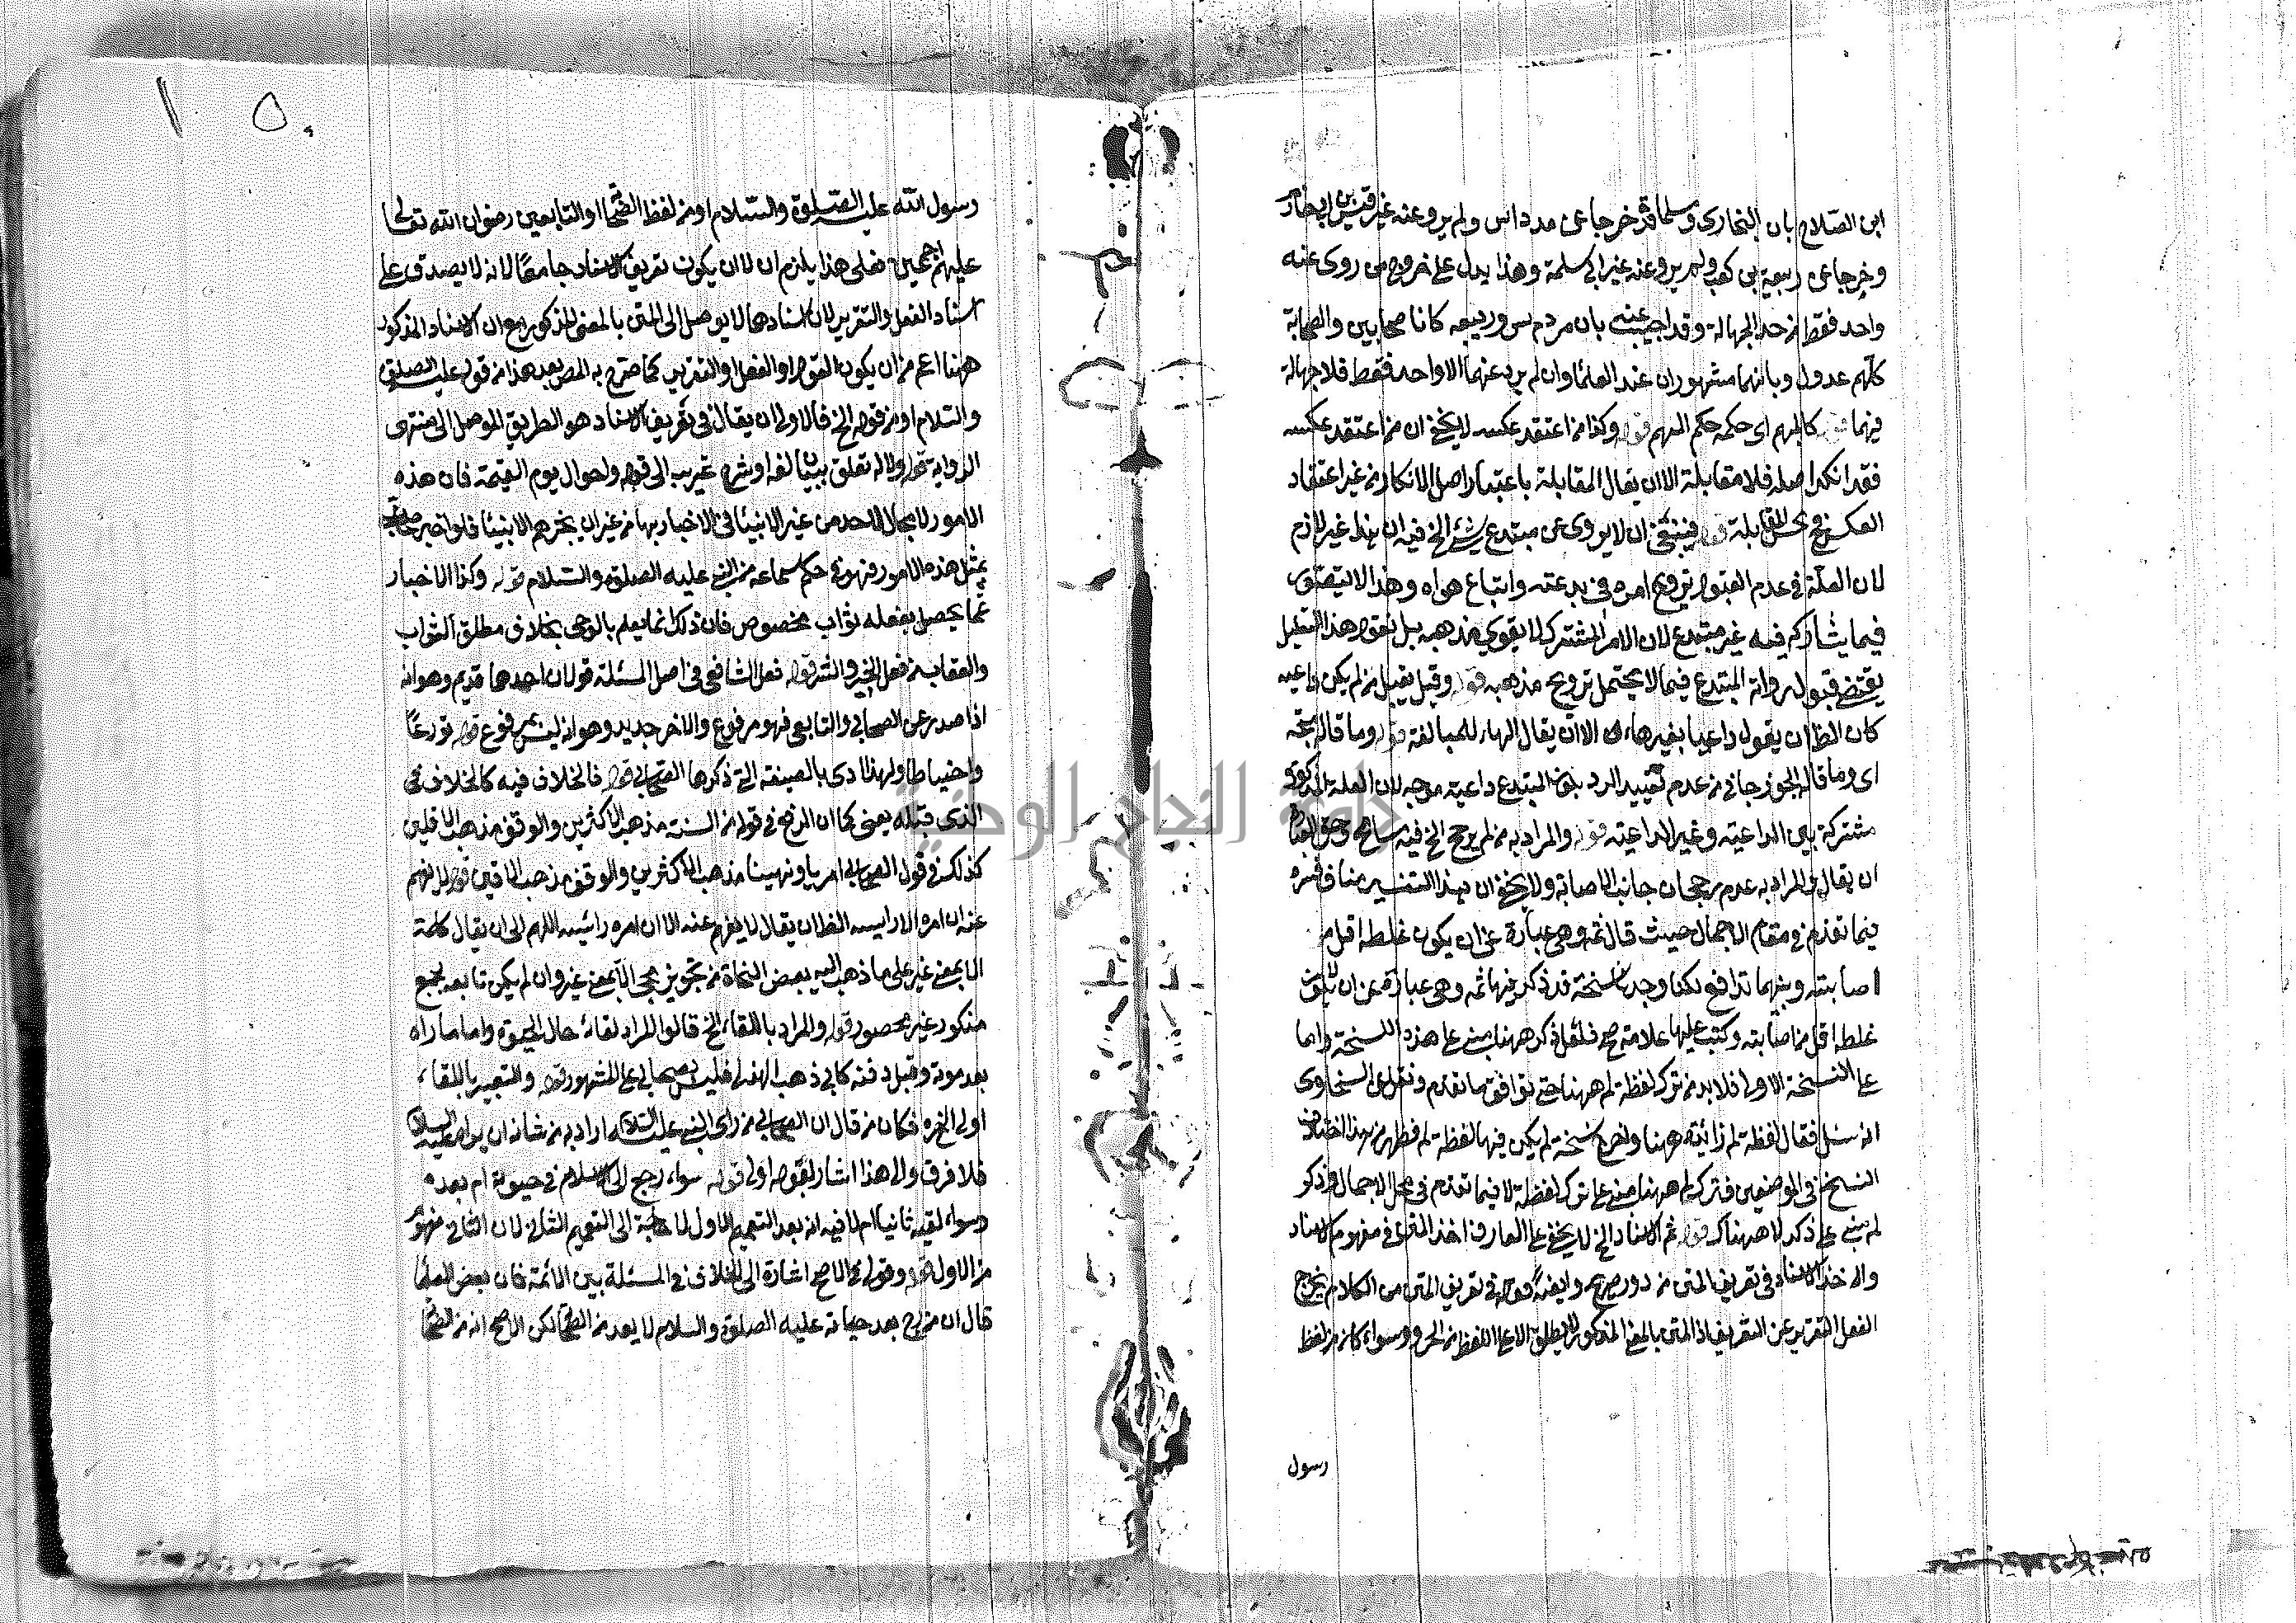 ابن الصلاح بان البخاري ومسلما قد خرجا عن مرداس ولم يرو عنه غير قيس بن ابي حازم
وخرجا عن ربيعة بن كعب ولم يرو عنه غير ابي سلمة وهذا يدل على خروج من روى عنه
واحد فقط من حد الجهالة وقد اجيب عنه بان مرداس وربيعه كانا صحابيين والصحابة
كلهم عدول وبانهما مشهوران عند العلماء وان لم يرو عنهما الا واحد فقط فلا جهالة
فيهما قوله كالمبهم اى حكمه حكم المبهم قوله وكذا من اعتقد عكسه لا يخفى ان من اعتقد عكسه
فقد انكر اصله فلا مقابلة الا ان يقال المقابلة باعتبار اصل الانكار من غير اعتقاد
العكس المقابلة قوله فينبغي ان لا يروى عن مبتدع شئ الخ فيه ان هذا غير لازم
لان العلة في عدم القبول ترويج امره في بدعته واتباع هواه وهذا لا يتصور
فيما يشاركه فيه غير مبتدع لان الامر المشترك لا يقوي مذهبه بل نقول هذا التعليل
يقتضي قبول رواته المبتدع فيما لا يحتمل ترويج مذهبه قوله وقيل يقبل من لم يكن داعية
كان الظ ان يقول داعيا بغيرهاء الا ان يقال الهاء للمبالغة قوله وما قاله متجه
اى وما قاله الجوزجاني من عدم تقييد الرد بكون المبتدع داعية موجه لان العلة المذكورة
مشتركة بين الداعية وغير الداعية قوله والمراد به من لم يرجح الخ فيه تسامح وحق العبارة
ان يقال المراد به عدم رجحان جانب الاصابة ولا يخفى ان هذا التفسير مناف لما فسره
فيما تقدم في مقام الاجمال حيث قال ثمه وهى عبارة عن ان يكون غلطه اقل من
اصابته وبينهما تدافع لكنا وجدنا نسخة قد ذكر فيها ثمه وهى عبارة عن ان لا يكون
غلطه اقل من اصابته وكتب عليها علامة صح فلعل ذكر ههنا مبني على هذه النسخة واما
على النسخة الاولى فلا بد من ترك لفظة لم ههنا حتى توافق ما تقدم ونقل عن السخاوى
انه سئل فقال لفظة لم زائدة ههنا واخرج نسخة لم يكن فيها لفظة لم فظهر من هذا اختلاف
النسخ في الموضعين فترك لم ههنا مبني على ترك لفظة لا فيما تقدم في محل الاجمال وذكر
لم مبني على ذكر لا هناك قوله ثم الاسناد الخ لا يخفى على العارف اخذ المتن في مفهوم الاسناد
واخذ الاسناد في تعريف المتن من دور صريح وايضا قوله في تعريف المتن من الكلام يخرج
الفعل والتقرير عن التعريف اذ المتن بالمعنى المذكور لا يطلق الا على اللفظ من الحروف سواء كان من لفظ
رسول
١٥٠
رسول الله عليه الصلوة والسلام او من لفظ الصحابة او التابعين رضوان الله تعالى
عليهم اجمعين فعلى هذا يلزم ان لا يكون تعريف الاسناد جامعا لانه لا يصدق على
اسناد الفعل والتقرير لان اسنادهما لا يوصل الى المتن بالمعنى المذكور مع ان الاسناد المذكور
ههنا اعم من ان يكون القول او الفعل او التقرير كما صرح به المص بعد هذا من قوله عليه الصلوة
والسلام او من قوله الخ فالاولى ان يقال في تعريف الاسناد هو الطريق الموصل الى منتهى
الرواية قوله ولا له تعلق ببيان لغة او شرح غريب الى قوله واحوال يوم القيمة فان هذه
الامور لا مجال لاحد من غير الانبياء في الاخبار بها من غير ان يخبرهم الانبياء فلو اخبر صحابي
بمثل هذه الامور فهو في حكم سماعه من النبي عليه الصلوة والسلام قوله وكذا الاخبار
عما يحصل بفعله ثواب مخصوص فان ذلك انما يعلم بالوحى بخلاف مطلق الثواب
والعقاب من فعل الخير والشر قوله فعل الشافعى في اصل المسئلة قولان احدهما قديم وهو انه
اذا صدر عن الصحابي والتابعي فهو مرفوع والاخر جديد وهو انه ليس بمرفوع قوله تورعا
واحتياطا ولهذا ادى بالصيغة التي ذكرها الصحابي قوله فالخلاف فيه كالخلاف في
الذى قبله يعنى كما ان الرفع في قوله من السنة مذهب الاكثرين والوقف مذهب الباقين
كذلك في قول الصحابي امرنا ونهينا مذهب الاكثرين والوقف مذهب الباقين قوله لا يفهم
عنه ان امره الا رئيسه الظ ان يقال لا يفهم عنه الا ان امره رئيسه اللهم الى ان يقال كلمة
الا بمعنى غير على ما ذهب اليه بعض النحاة من تجويز مجئ الا بمعنى غير وان لم يكن تابعه لجمع
منكور غير محصور قوله والمراد باللقاء الخ قالوا المراد لقاء حال الحيوة واما ما راه
بعد موته وقبل دفنه كابي ذهب الهذلي فليس بصحابي على المشهور قوله والتعبير باللقاء
اولى الخ فكان من قال ان الصحابي من راى النبي عليه السلام اراد به من شانه ان يراه عليه السلام
فلا فرق والى هذا اشار بقوله اولى قوله سواء رجع الى الاسلام في حيوته ام بعده
وسواء لقيه ثانيا ام لا فيه انه بعد التعميم الاول لا حاجة الى التعميم الثاني لان الثاني مفهوم
من الاول قوله وقوله في الاصح اشارة الى الخلاف في المسئلة بين الائمة فان بعض العلماء
قال ان من رجع بعد حياته عليه الصلوة والسلام لا يعد من الصحابة لكن الاصح انه من الصحابة